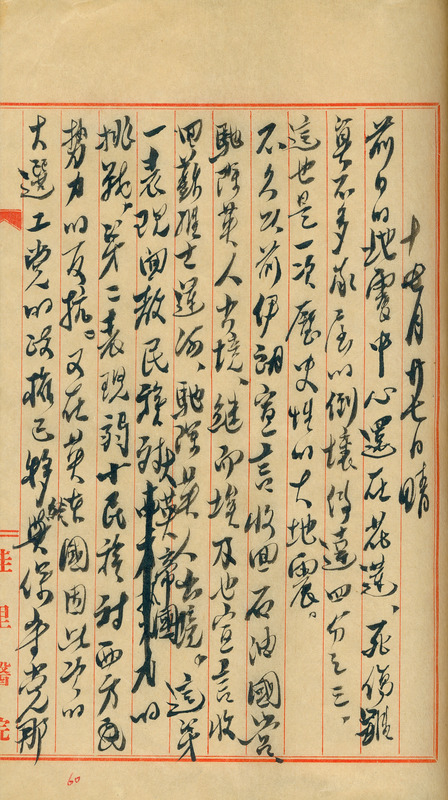 十月廿七日 晴
前日的地震中心還在花蓮、死傷雖
算不多家屋的倒壞得達四分之三、
這也是一次歷史性的大地震。
不久以前伊朗宣言收回石油國營、
驅除英人出境、繼而埃及也宣言收
回蘇維士運河、驅除英人出境。這第
一表現回教民族對英帝國的
挑戰、第二表現弱小民族對西方民
勢力的反抗。又在英本國因此次的
大選工党的政權已移給與保守党那
佳里醫院
60